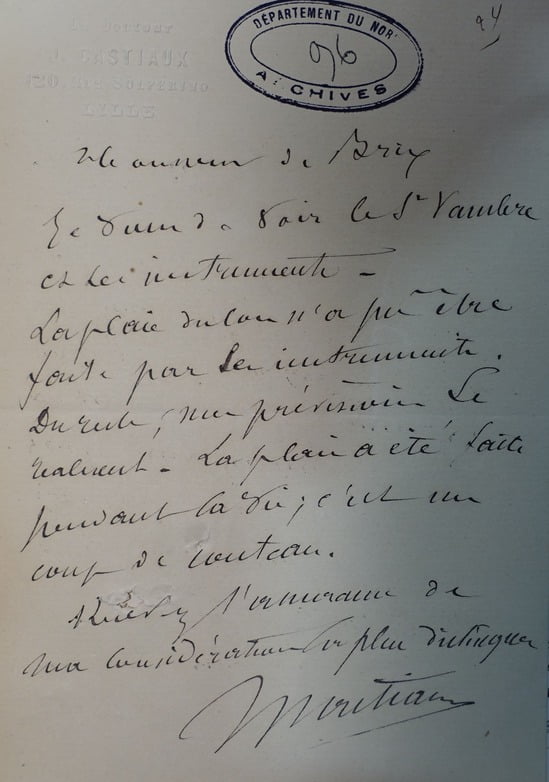 Le Docteur
J. CASTIAUX
120, Rue SOLFERINO
LILLE
DÉPARTEMENT DU NOR
96
ARCHIVES
94
Monsieur de Brix
Je viens de voir le Sr Vambre
et les instruments -
La plaie du cou n'a pu être
faite par les instruments.
Du reste, mes prévisions se
réalisent - La plaie a été faite
pendant la vie ; c'est un
coup de couteau.
Recevez l'assurance de
ma considération la plus distinguée